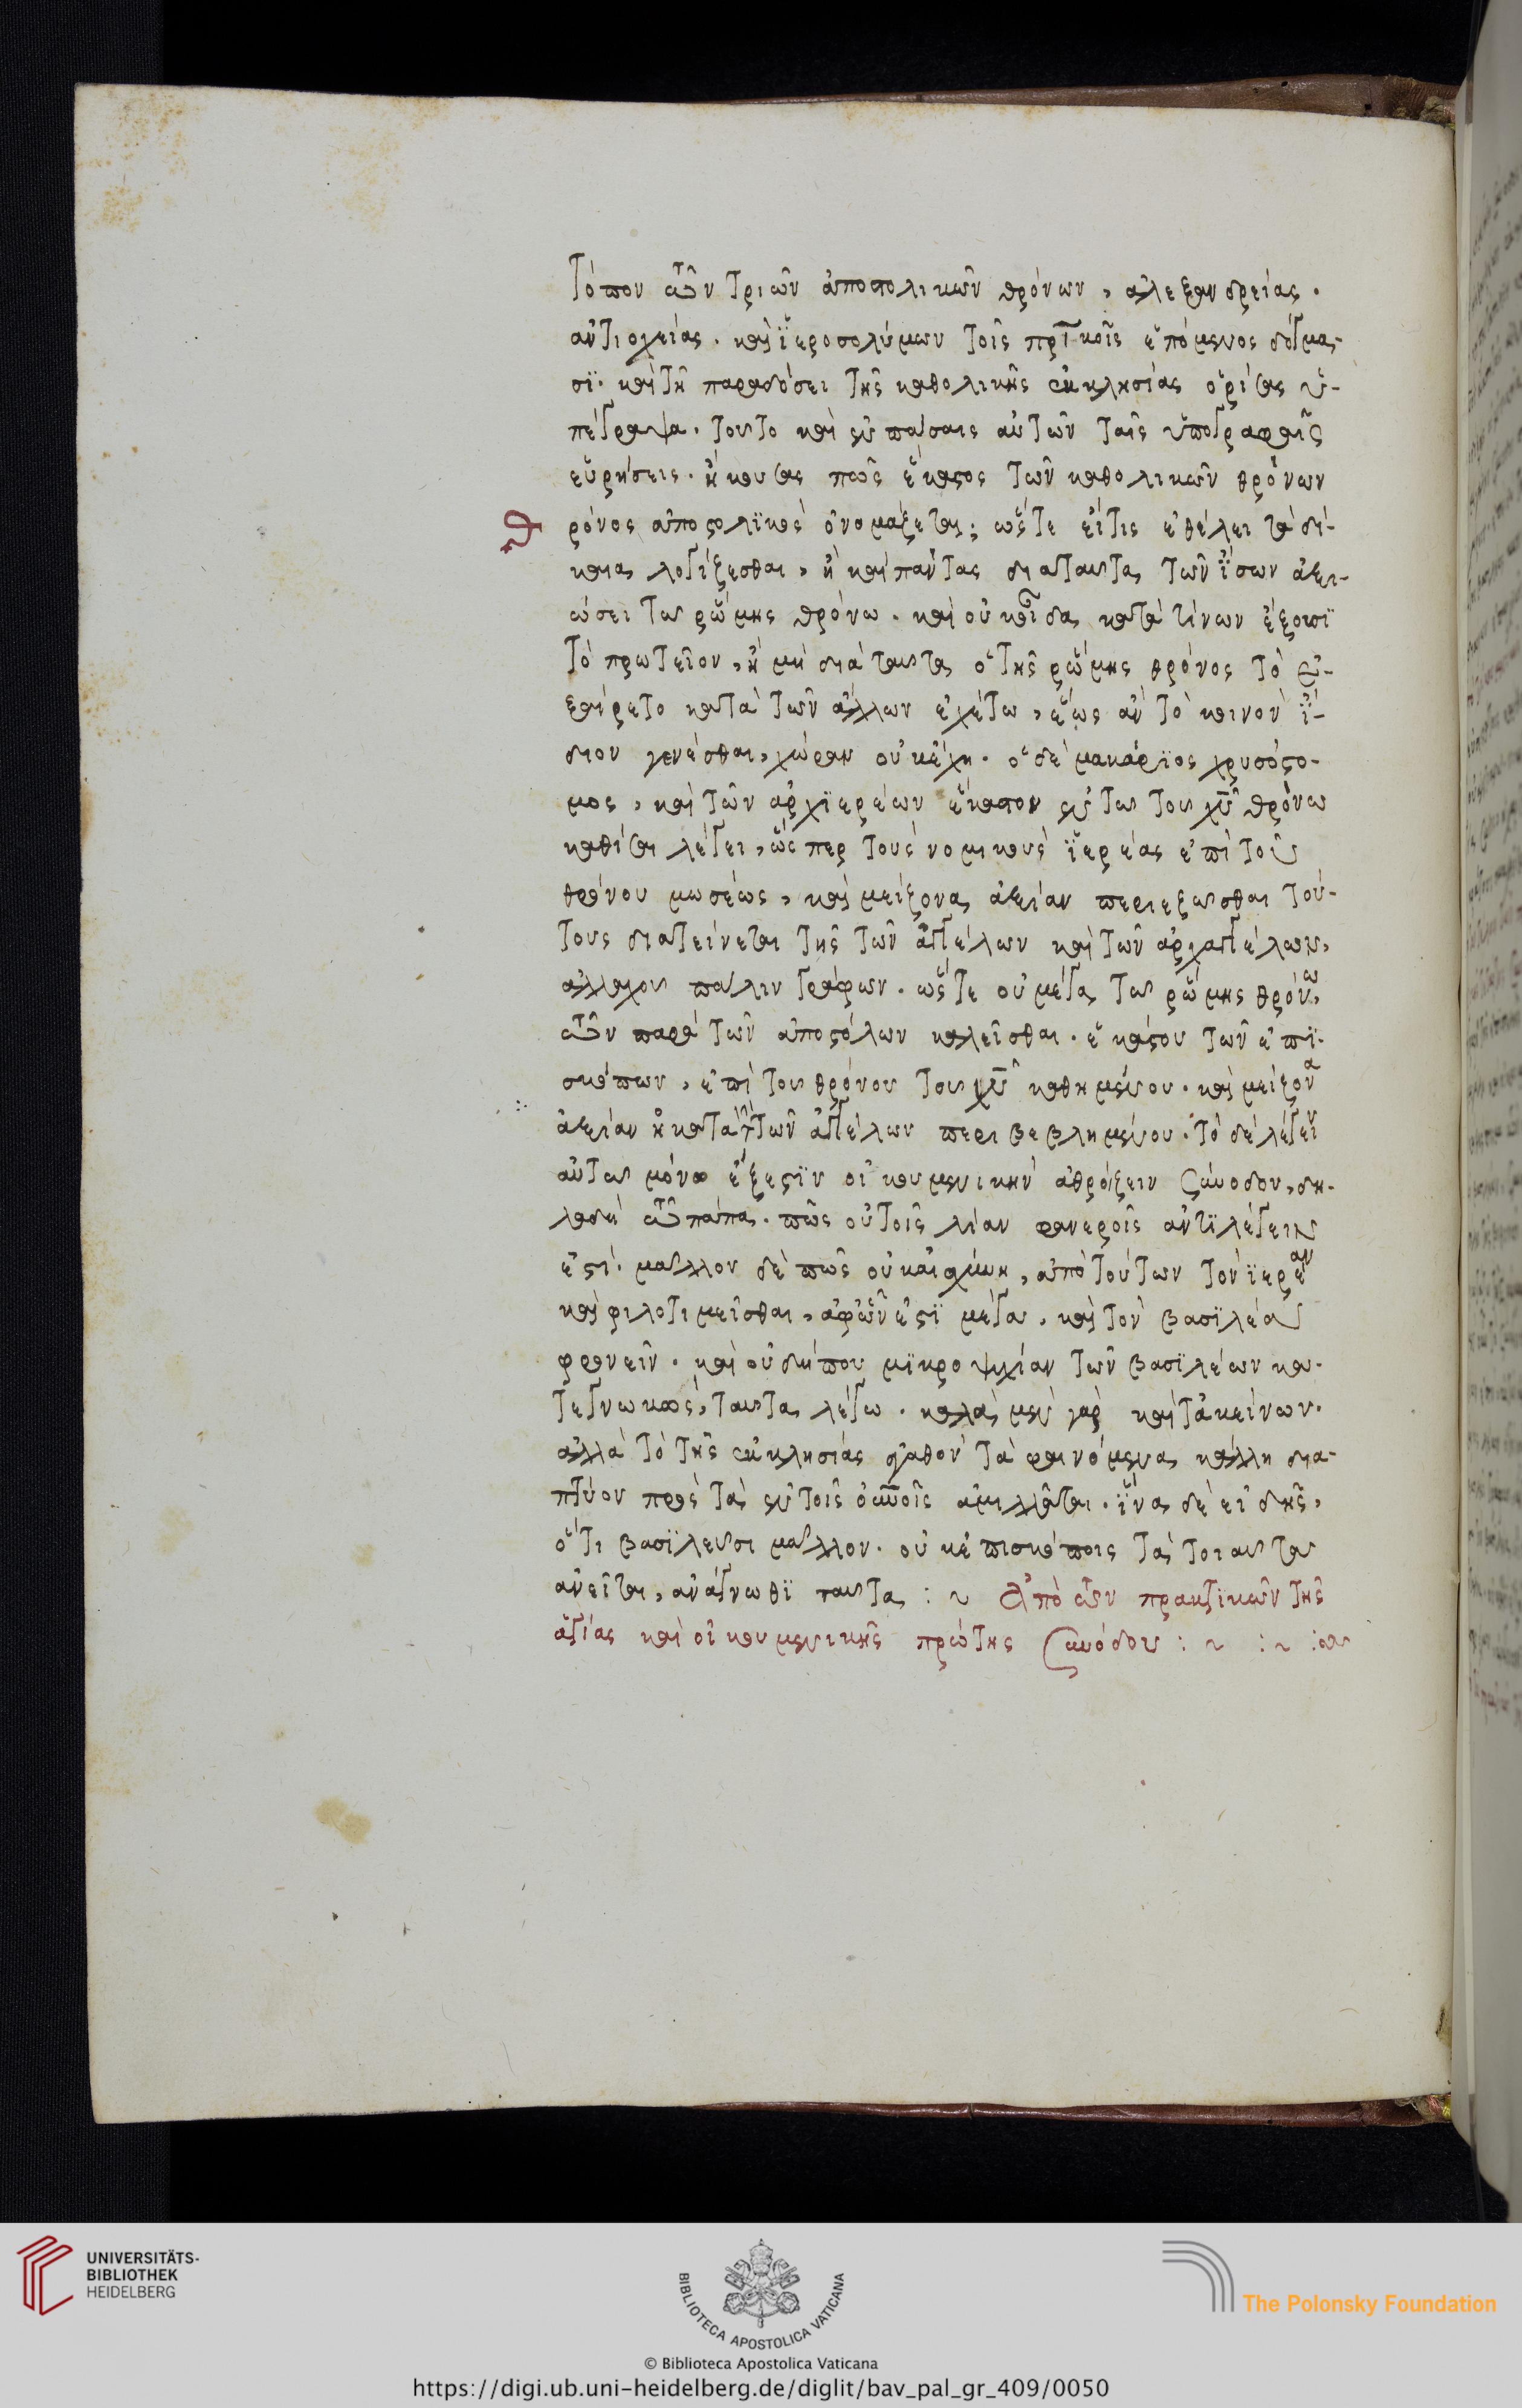 τόπον τῶν τριῶν ἀποστολικῶν θρόνων, ἀλεξανδρείας.
ἀντιοχείας. καὶ ϊεροσολύμων τοῖς πρικοῖς ἑπόμενος δόγμα-
σϊ. καὶ τῆ παραδόσει τῆς καθολικῆς ἐκκλησίας ὁρίσας ὑ-
πέγραψα. τοῦτο καὶ ἐν πάσαις αὐτῶν ταῖς ὑπογραφαῖς
εὑρήσεις. ἤκουσας πῶς ἕκαστος τῶν καθολικῶν θρόνων
θρόνος ἀποστολϊκὸς ὀνομάζεται; ὥστε εἴτις ἐθέλει τὰ δί-
καια λογίζεσθαι, ἢ καὶ πάντας διαταῦτα τῶν ἴσων ἀξι-
ώσει τῶ ῥώμης θρόνω. καὶ οὐκ οἶδα κατὰ τίνων ἕξουσϊ
τὸ πρωτεῖον, ἢ μὴ διὰ ταῦτα ὁ τῆς ῥώμης θρόνος τὸ ἐ-
ξαίρετο κατὰ τῶν ἄλλων ἐχέτω, ἕως ἂν τὸ κοινὸν ἴ-
διον γενέσθαι, χώραν οὐκ ἔχη. ὁ δὲ μακάρϊος χρυσόστο-
μος, καὶ τῶν ἀρχϊερέων ἕκαστον ἐν τῶ τοῦ χῦ θρόνω
καθίσαι λέγει, ὥσπερ τοὺς νομικοὺς ϊερέας ἐπὶ τοῦ
θρόνου μωσέως, καὶ μείζονα ἀξίαν περιεζῶσθαι τού-
τους διατείνεται τῆς τῶν ἀγγέλων καὶ τῶν ἀρχαγγέλων,
ἀλλαχοῦ πάλιν γράφων. ὥστε οὐ μέγα τῶ ῥώμης θρόνω,
τῶν παρὰ τῶν ἀποστόλων καλεῖσθαι. ἑκάστου τῶν ἐπϊ-
σκόπων, ἐπὶ τοῦ θρόνου τοῦ χῦ καθημένου. καὶ μείζονα
ἀξίαν ἢ κατὰ τὴν τῶν ἀγγέλων περιβεβλημένου. τὸ δὲ λέγειν
αὐτῶ μόνω ἔξεστϊν οἰκουμενικὴν ἀθροίζειν σύνοδον, δη-
λαδὴ τῶ πάπα. πῶς οὐ τοῖς λίαν φανεροῖς ἀντϊλέγειν
ἐστί. μᾶλλον δὲ πῶς οὐκ αἰσχύνη, ἀπὸ τούτων τὸν ϊερέαν
καὶ φιλοτιμεῖσθαι, ἀφ ὧν ἐστϊ μέγα, καὶ τὸν βασϊλέα
φρονεῖν. καὶ οὐ δήπου μϊκροψυχίαν τῶν βασϊλέων κα-
τεγνωκὼς, ταῦτα λέγω. καλὰ μὲν γὰρ καὶ τἀκείνων.
ἀλλὰ τὸ τῆς ἐκκλησίας ἀγαθὸν τὰ φαινόμενα κάλλη δια-
πτύον πρὸς τὰ ἐν τοῖς οὐνοῖς ἁμιλλᾶται. ἵνα δὲ εἰδῆς,
ὅτι βασϊλεῦσι μᾶλλον. οὐκ ἐπισκόποις τὰ τοιαῦτα
ἀνεῖται, ἀνάγνωθϊ ταῦτα : ~ Ἀπὸ τῶν πρακτϊκῶν τῆς
ἁγίας καὶ οἰκουμενικῆς πρώτης συνόδου : ~ : ~ :
UNIVERSITÄTS-
BIBLIOTHEK
HEIDELBERG
BIBLIOTECA APOSTOLICA VATICANA
The Polonsky Foundation
© Biblioteca Apostolica Vaticana
https://digi.ub.uni-heidelberg.de/diglit/bav_pal_gr_409/0050